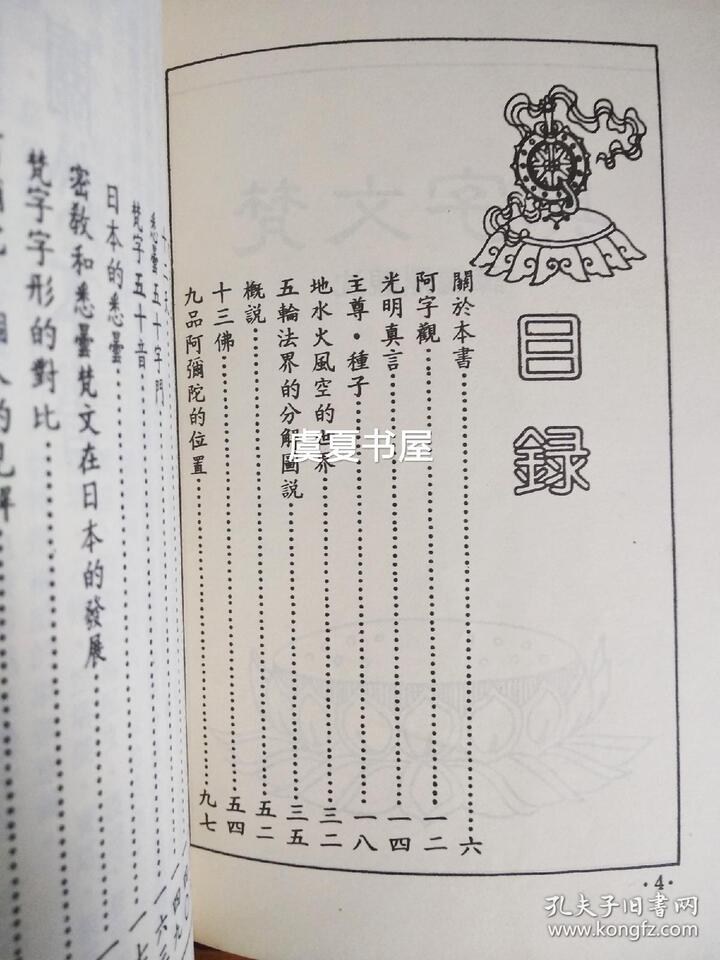 目録
關於本書 六
阿字觀 一二
光明真言 一四
主尊・種子 一八
地水火風空的世界 三二
五輪法界的分解圖説 三五
概説 五二
十三佛 五四
九品阿彌陀的位置 九七
·4·
悉曇五十字門
梵字五十音
日本的悉曇
密教和悉曇梵文在日本的發展
梵字字形的對比
虞夏书屋
孔夫子旧书网
www.kongfz.com